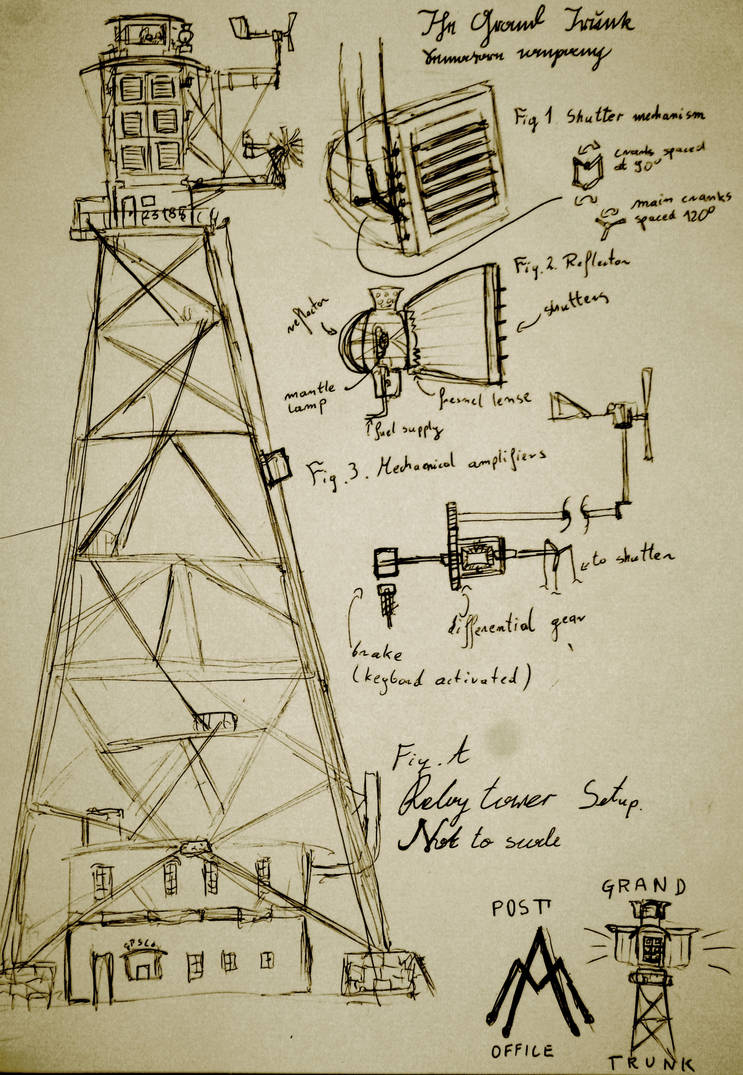 The Grand Trunk
Fig 1 Shutter mechanism
cranks spaced
at 90°
main cranks
spaced 120°
Fig. 2. Reflector
reflector
shutters
mantle
lamp
fresnel lense
fuel supply
Fig. 3. Mechanical amplifiers
to shutter
differential gear
brake
(keyboad activated)
Fig. A
Relay tower Setup.
Not to scale
POST
OFFICE
GRAND
TRUNK